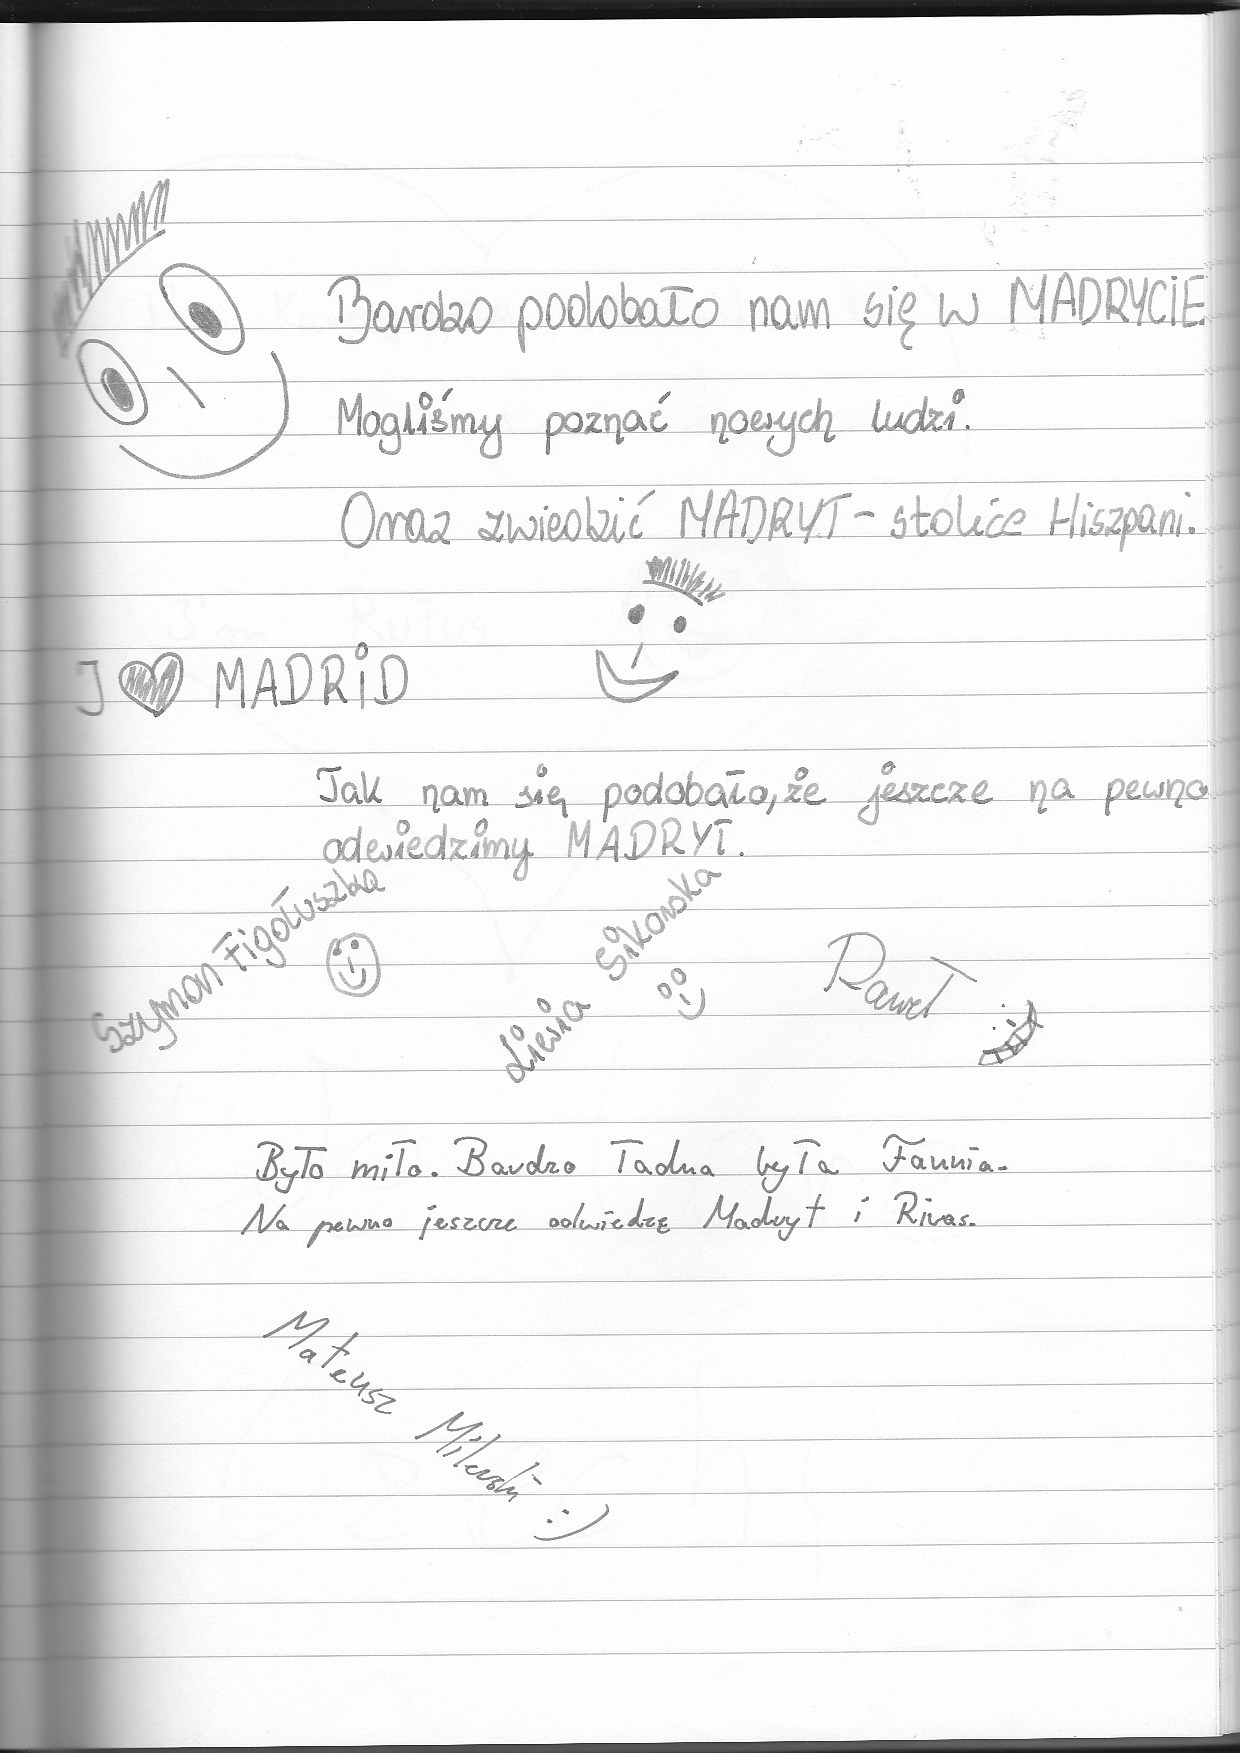 Bardzo podobało nam się w MADRYCIE
Mogliśmy poznać nowych ludzi.
Oraz zwiedzić MADRYT - stolicę Hiszpani.
I MADRiD
Tak nam się podobało, że jeszcze na pewno
odwiedzimy MADRYT.
Szymon Figołuszka
Liwia Sikorska
Paweł
Było miło. Bardzo ładna była Fannia.
Na pewno jeszcze odwiedzę Madryt i Rivas.
Mateusz Milewski :)